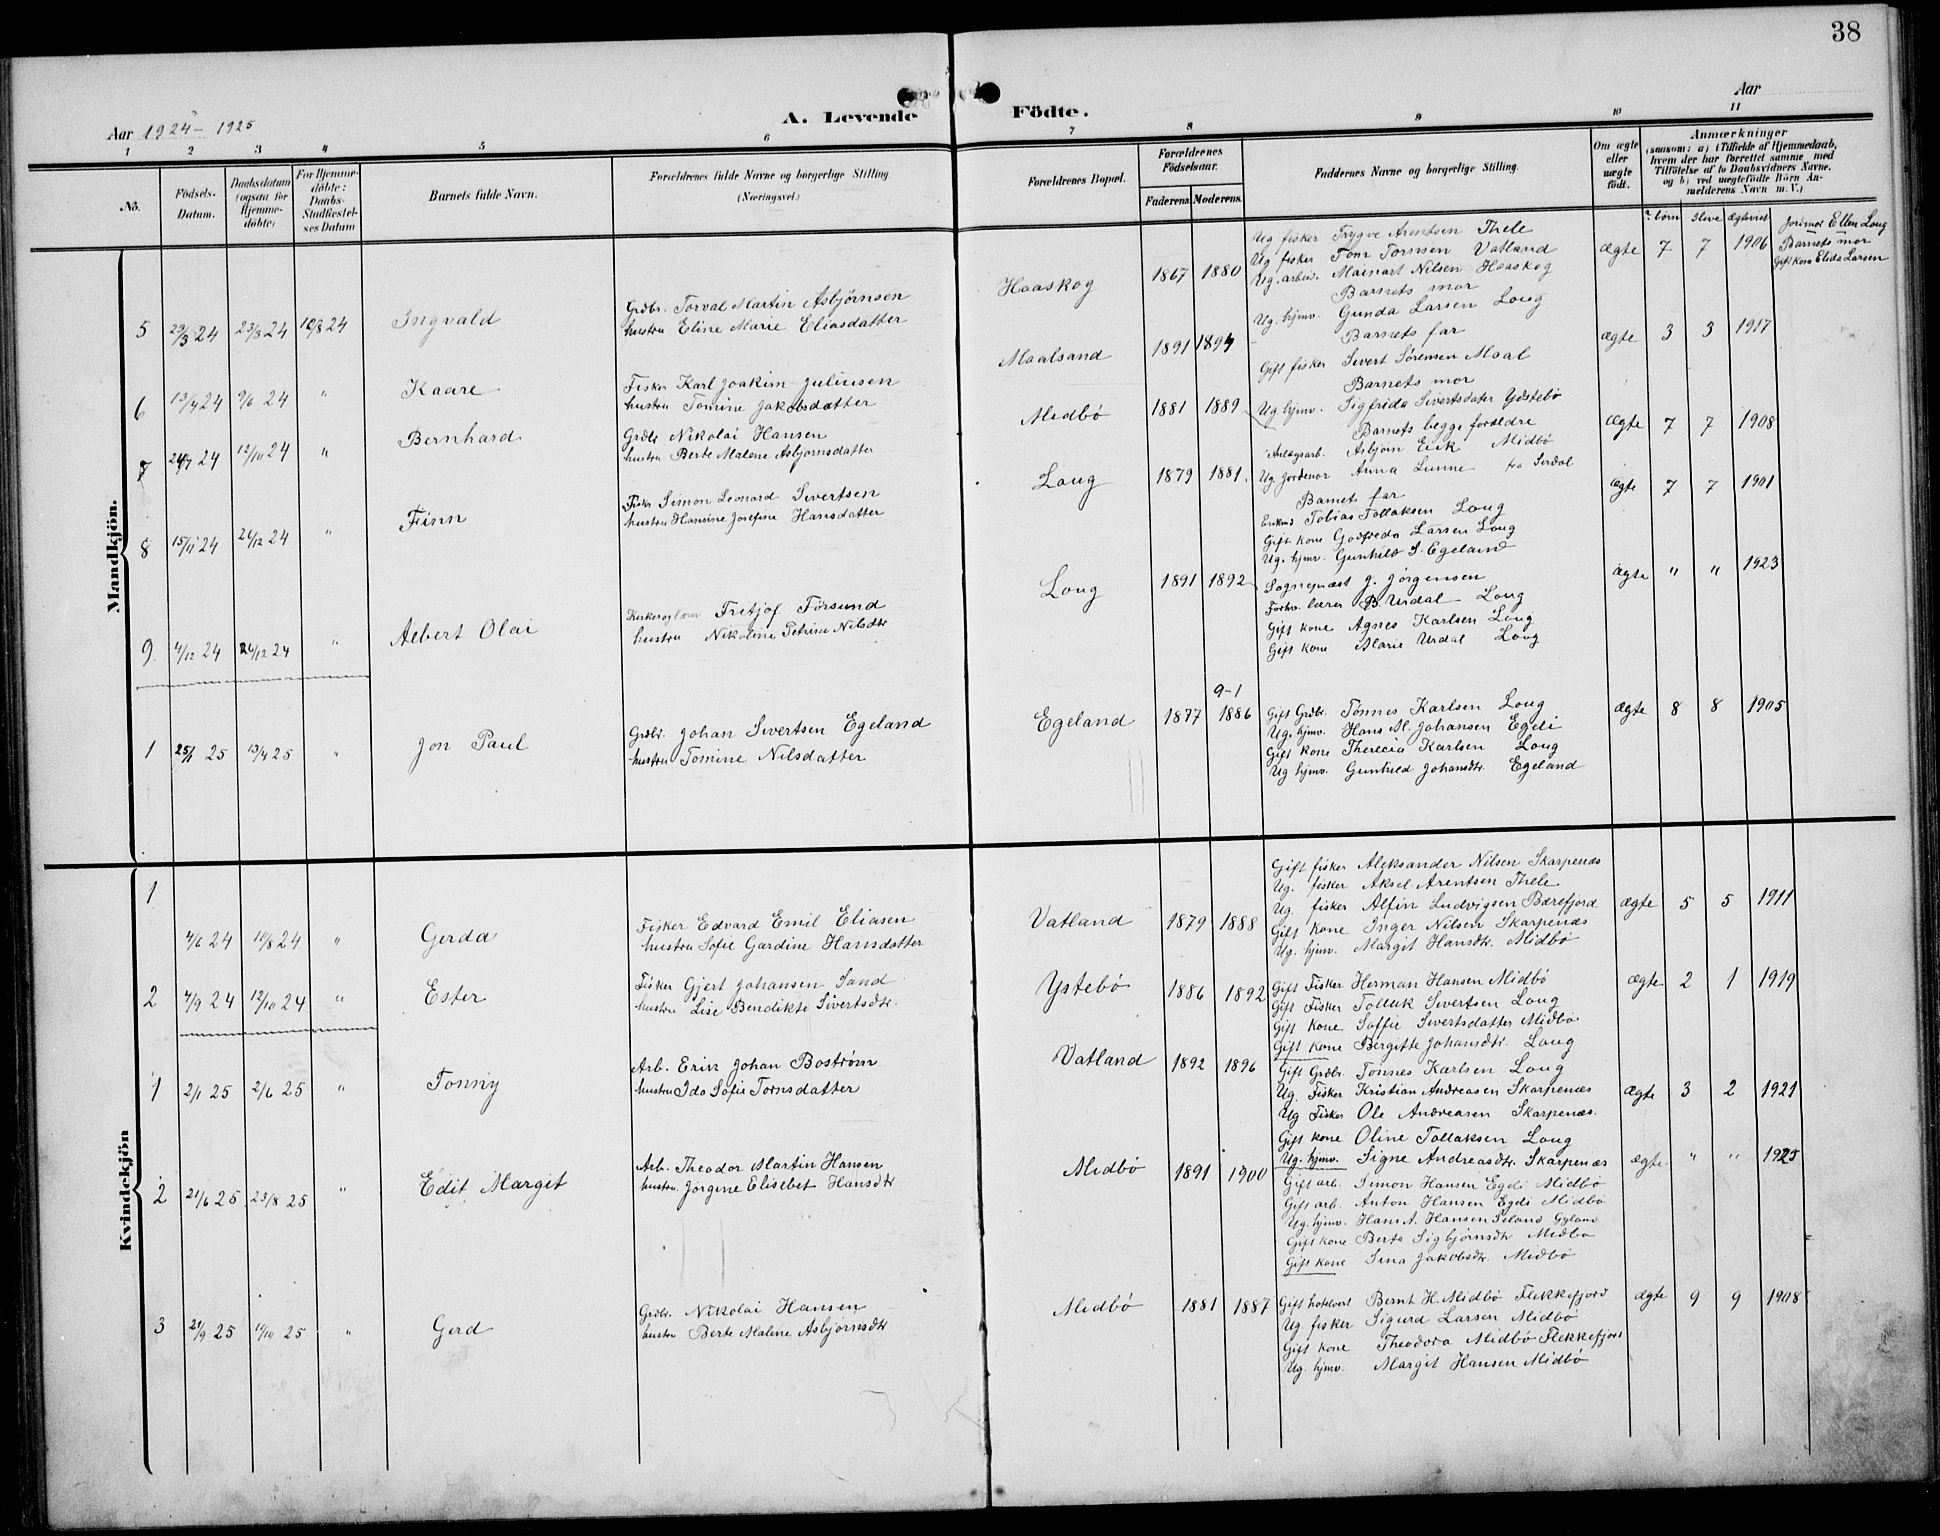 38
Aar 1924-1925
A. Levende Födte.
Aar
1 2 3 4 5 6 7 8 9 10 11
No.
Födsels-Datum.
Daabsdatum (ogsaa for Hjemmedöbte)
For Hjemmedöbte: Daabs-Stadfæstelses Datum
Barnets fulde Navn.
Forældrenes fulde Navne og borgerlige Stilling. (Næringsvei.)
Forældrenes Bopæl.
Forældrenes Födselsaar.
Faderens. Moderens.
Faddernes Navne og borgerlige Stilling.
Om ægte eller uægte födt.
Anmærkninger
(saasom: a) i Tilfælde af Hjemmedaab,
hvem der har forrettet samme med
Tilföielse af to Daabsvidners Navne.
og b) ved uægtefödte Börn Anmelderens Navn m. V.)
börn ilive Ægteviet
Mandkjön.
5 29/3 24 23/8 24 10/8 24 Ingvald
Grdbr. Torval Martin Asbjørnsen
hustru Eline Marie Eliasdatter
Haaskog 1867 1880
Ug fisker Trygve Arentsen Thele
Ug fisker Tom Tomsen Vatland
Ug. arbeid. Mainart Nilsen Haaskog
Barnets mor
Ug. hjmv. Gunda Larsen Loug
ægte 7 7 1906
Jordmor Ellen Loug
Barnets mor
Gift kone Elida Larsen
6 13/4 24 9/6 24 " Kaare
Fisker Karl Joakim Juliusen
hustru Tomine Jakobsdatter
Maalsand 1891 1894
Barnets far
Gift fisker Sivert Sørensen Maal
Barnets mor
Ug hjmv. Sigfrida Sivertsdater Ystebö
ægte 3 3 1917
7 24/7 24 12/10 24 " Bernhard
Grdbr Nikolai Hansen
hustru Berte Malene Asbjornsdatter
Midbö 1881 1889
Barnets begge foreldre
Anlægsarb. Asbjörn Eik Midbö
Ug Jordmor Anna Lunne fra Sirdal
ægte 7 7 1908
8 15/11 24 26/12 24 " Finn
Fisker Simon Leonard Sivertsen
hustru Hansine Josefine Hansdatter
Loug 1879 1881
Barnets far
Tobias Tollaksen Loug
Gift kone Godfreda Larsen Loug
Ug. hjmv. Gunhild S. Egeland
ægte 7 7 1901
9. 4/12 24 26/12 24 " Albert Olai
Fritjof Försund
hustru Nikoline Petrine Nilsdtr
Loug 1891 1892
Sogneprest G. Jörgensen
Forhv. lærer B. Urdal Loug
Gift kone Agnes Karlsen Loug
Gift kone Marie Urdal Loug
ægte " " 1923
1 25/1 25 13/4 25 " Jon Paul
Grdbr. Johan Sivertsen Egeland
hustru Tomine Nilsdatter
9-1
Egeland 1877 1886
Gift Grdbr. Tönnes Karlsen Loug
Ug. hjmv. Hans M. Johansen Egdi
Gift kone Therecia Karlsen Loug
Ug hjmv. Gunhild Johansdtr. Egeland
ægte 8 8 1905
Kvindekjön
1 4/6 24 10/8 24 " Gerda
Fisker Edvard Emil Eliasen
hustru Sofie Gardine Hansdatter
Vatland 1879 1888
Gift fisker Aleksander Nilsen Skarpenæs
Ug. fisker Aksel Arentsen Thele
Ug fisker Alfin Ludvigsen Bærefjord
Gift kone Inger Nilsen Skarpenæs
Ug. hjmv. Margit Hansdtr. Midbö
ægte 5 5 1911
2 7/9 24 12/10 24 " Ester
Fisker Gjert Johansen Sand
hustru Lise Bendikte Sivertsdtr.
Ystebö 1886 1892
Gift Fisker Herman Hansen Midbö
Gift Fisker Tollak Sivertsen Loug
Gift kone Soffie Sivertsdatter Midbö
Gift kone Bergitte Johansdtr. Loug
ægte 2 1 1919
1 2/1 25 2/6 25 " Tonny
Arb. Erik Johan Boström
hustru Ida Sofie Tomsdatter
Vatland 1892 1896
Gift Grdbr. Tönnes Karlsen Loug
Ug. Fisker Kristian Andreasen Skarpenæs
Ug Fisker Ole Andreasen Skarpenæs.
Gift kone Oline Tollaksen Loug
Ug. hjmv. Signe Andreasdtr. Skarpenæs
ægte 3 2 1921
2 21/6 25 23/8 25 " Edit Margit
Arb. Theodor Martin Hansen
hustru. Jörgine Elisebet Hansdtr
Midbö 1891 1900
Gift arb. Simon Hansen Egdi Midbö
Gift arb. Anton Hansen Egdi Midbö
Ug. hjmv. Hans A. Hansen Seland Gyland
Gift kone Berta Sigbjörnsdtr Midbö
Gift kone Sina Jakobsdtr. Midbö
ægte " " 1925
3 21/9 25 11/10 25 " Gerd
Grdbr. Nikolai Hansen
hustru Berte Malene Asbjörnsdtr
Midbö 1881 1887
Gift hotelvert Bernt H. Midbö Flekkefjord
Ug fisker Sigurd Larsen Midbö
Gift kone Theodora Midbö Flekkefjord
Ug. hjmv. Margit Hansen Midbö
ægte 9 9 1908